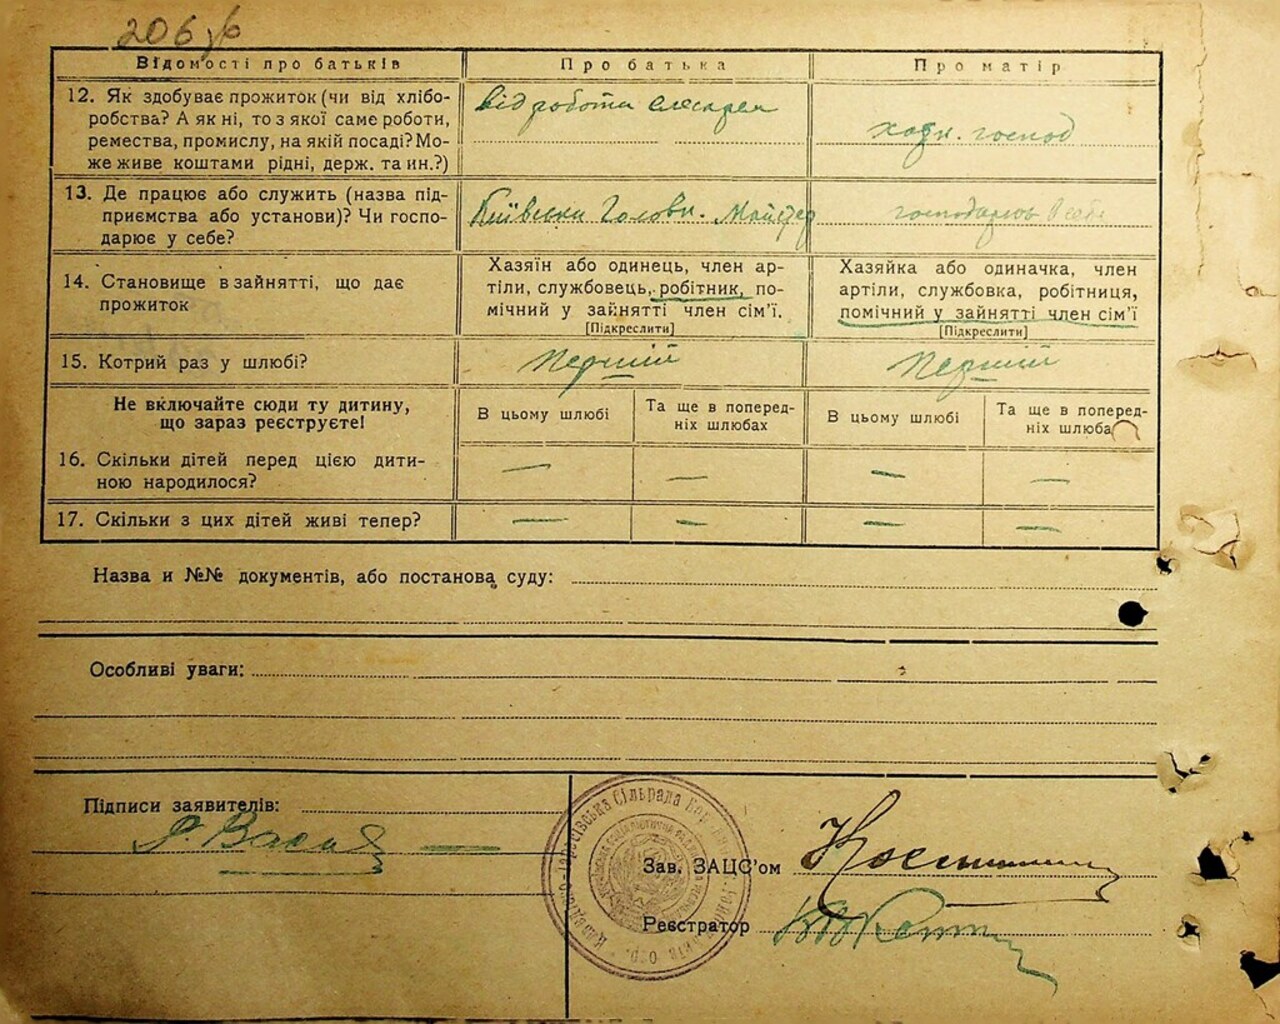 206 зв
Відомості про батьків
Про батька
Про матір
12. Як здобуває прожиток (чи від хлібо-
робства? А як ні, то з якої саме роботи,
ремества, промислу, на якій посаді? Мо-
же живе коштами рідні, держ. та ин.?)
від роботи слюсаря
хатн. господ
13. Де працює або служить (назва під-
приємства або установи)? Чи госпо-
дарює у себе?
Київськи Головн. Майстер
господарює в себе
14. Становище в зайнятті, що дає
прожиток
Хазяїн або одинець, член ар-
тіли, службовець, робітник, по-
мічний у зайнятті член сім'ї.
[Підкреслити]
Хазяйка або одиначка, член
артіли, службовка, робітниця,
помічний у зайнятті член сім'ї
[Підкреслити]
15. Котрий раз у шлюбі?
Перший
Перший
Не включайте сюди ту дитину,
що зараз реєструєте!
В цьому шлюбі
Та ще в поперед-
ніх шлюбах
В цьому шлюбі
Та ще в поперед-
ніх шлюбах
16. Скільки дітей перед цією дити-
ною народилося?
— — — —
17. Скільки з цих дітей живі тепер?
— — — —
Назва и №№ документів, або постанова суду:
Особливі уваги:
Підписи заявителів:
Сільрада
Зав. ЗАЦС'ом
Реєстратор